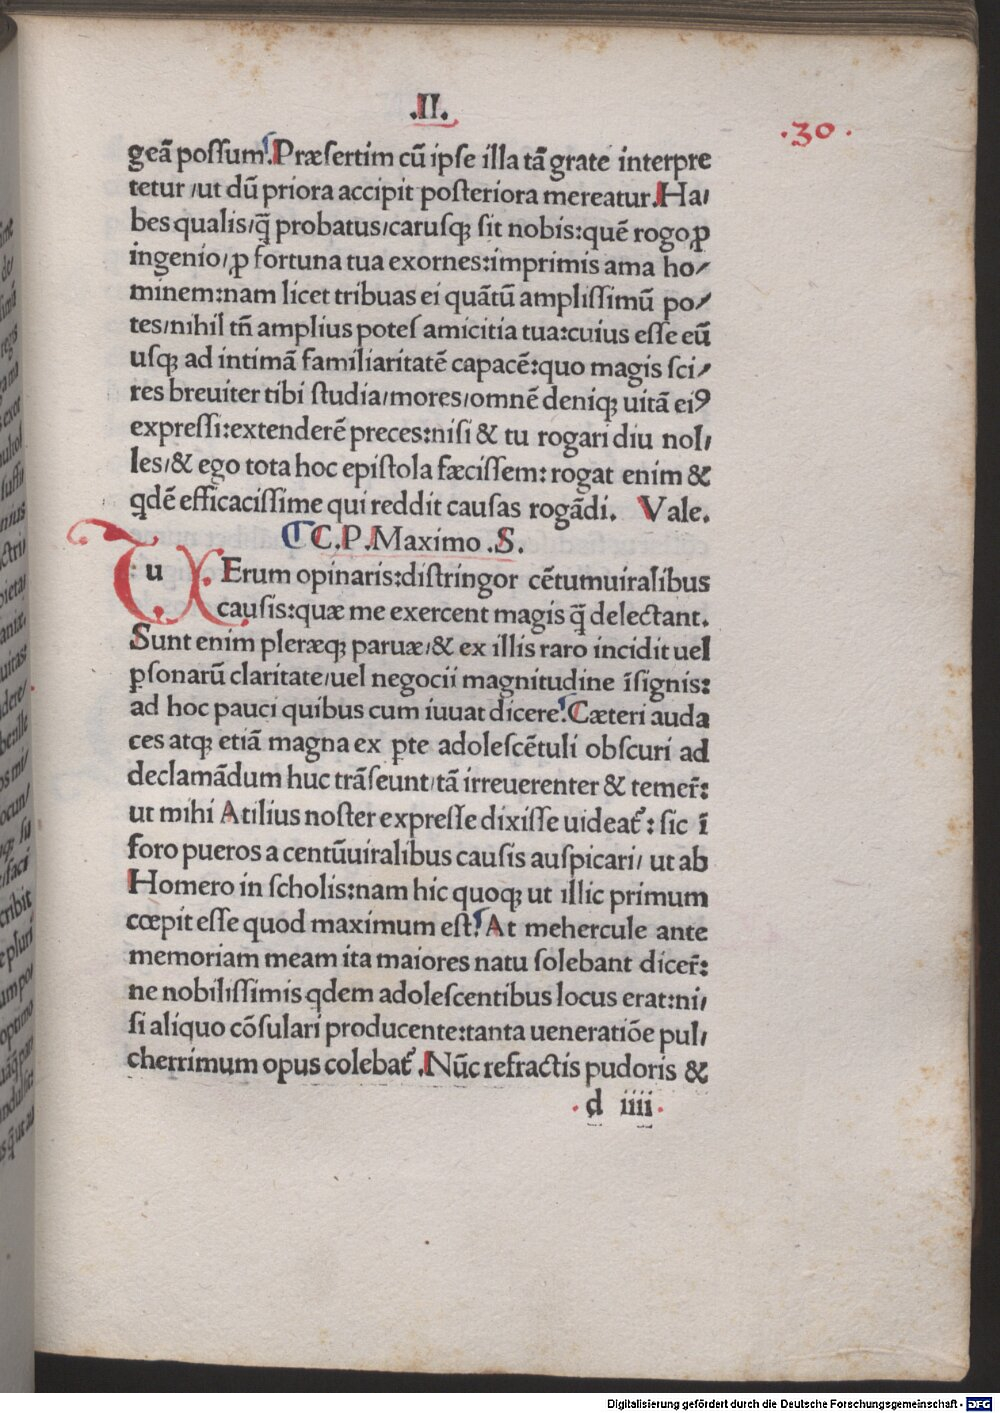 .II.
·30·
geā possum. Præsertim cū ipse illa tā grate interpre
tetur/ut dū priora accipit posteriora mereatur. Ha/
bes qualis/q̄ probatus/carusqꝫ sit nobis:quē rogo ꝓ
ingenio/ꝓ fortuna tua exornes:imprimis ama ho/
minem:nam licet tribuas ei quātū amplissimū po/
tes/nihil tn̄ amplius potes amicitia tua:cuius esse eū
usqꝫ ad intimā familiaritatē capacē:quo magis sci/
res breuiter tibi studia/mores/omnē deniqꝫ uitā eiꝰ
expressi:extenderē preces:nisi & tu rogari diu nol/
les/& ego tota hoc epistola fæcissem: rogat enim &
qdē efficacissime qui reddit causas rogādi. Vale.
C.P. Maximo .S.
u Erum opinaris:distringor cētumuiralibus
causis:quæ me exercent magis q̄ delectant.
Sunt enim pleræqꝫ paruæ/& ex illis raro incidit uel
ꝑsonarū claritate/uel negocii magnitudine īsignis:
ad hoc pauci quibus cum iuuat dicere. Cæteri auda
ces atqꝫ etiā magna ex ꝑte adolescētuli obscuri ad
declamādum huc trāseunt/tā irreuerenter & temer̄:
ut mihi Atilius noster expresse dixisse uideat̄: sic ī
foro pueros a centūuiralibus causis auspicari/ ut ab
Homero in scholis:nam hic quoqꝫ ut illic primum
cœpit esse quod maximum est. At mehercule ante
memoriam meam ita maiores natu solebant dicer̄:
ne nobilissimis qdem adolescentibus locus erat:ni/
si aliquo cōsulari producente:tanta ueneratiōe pul/
cherrimum opus colebat̄. Nūc refractis pudoris &
d iiii
Digitalisierung gefördert durch die Deutsche Forschungsgemeinschaft - DFG